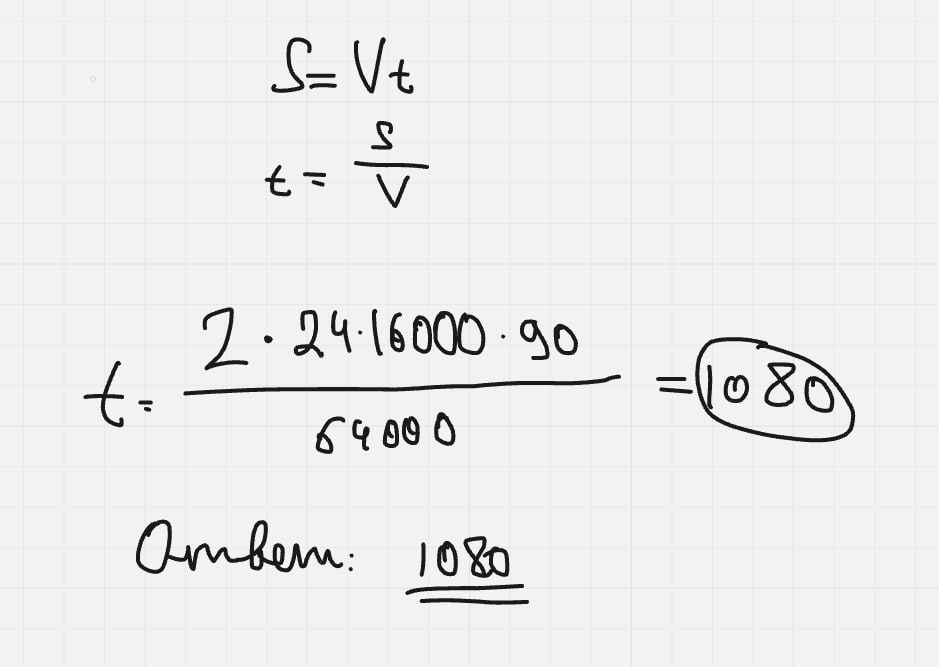 S = Vt
t = S/V
t = 2 · 24 · 16000 · 90 / 64000 = 1080
Ответ: 1080